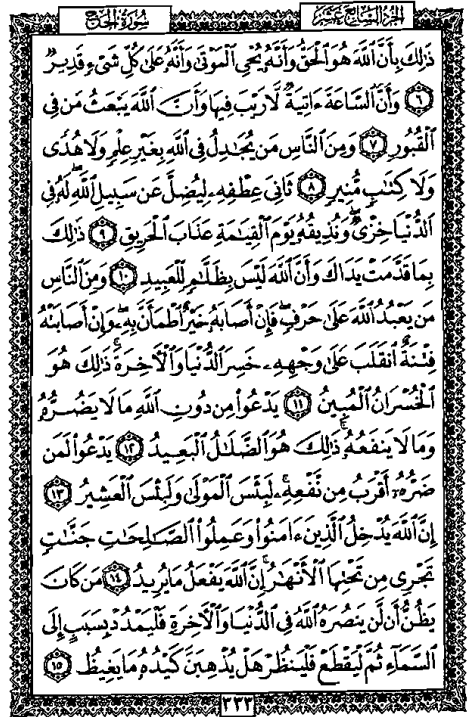 سُورَةُ الحَجِّ الجزء السابع عشر
ذَٰلِكَ بِأَنَّ ٱللَّهَ هُوَ ٱلْحَقُّ وَأَنَّهُۥ يُحْىِ ٱلْمَوْتَىٰ وَأَنَّهُۥ عَلَىٰ كُلِّ شَىْءٍ قَدِيرٌ
٦ وَأَنَّ ٱلسَّاعَةَ ءَاتِيَةٌ لَّا رَيْبَ فِيهَا وَأَنَّ ٱللَّهَ يَبْعَثُ مَن فِى
ٱلْقُبُورِ ٧ وَمِنَ ٱلنَّاسِ مَن يُجَٰدِلُ فِى ٱللَّهِ بِغَيْرِ عِلْمٍ وَلَا هُدًى
وَلَا كِتَٰبٍ مُّنِيرٍ ٨ ثَانِىَ عِطْفِهِۦ لِيُضِلَّ عَن سَبِيلِ ٱللَّهِ ۖ لَهُۥ فِى
ٱلدُّنْيَا خِزْىٌ ۖ وَنُذِيقُهُۥ يَوْمَ ٱلْقِيَٰمَةِ عَذَابَ ٱلْحَرِيقِ ٩ ذَٰلِكَ
بِمَا قَدَّمَتْ يَدَاكَ وَأَنَّ ٱللَّهَ لَيْسَ بِظَلَّٰمٍ لِّلْعَبِيدِ ١٠ وَمِنَ ٱلنَّاسِ
مَن يَعْبُدُ ٱللَّهَ عَلَىٰ حَرْفٍ ۖ فَإِنْ أَصَابَهُۥ خَيْرٌ ٱطْمَأَنَّ بِهِۦ ۖ وَإِنْ أَصَابَتْهُ
فِتْنَةٌ ٱنقَلَبَ عَلَىٰ وَجْهِهِۦ خَسِرَ ٱلدُّنْيَا وَٱلْءَاخِرَةَ ۚ ذَٰلِكَ هُوَ
ٱلْخُسْرَانُ ٱلْمُبِينُ ١١ يَدْعُوا۟ مِن دُونِ ٱللَّهِ مَا لَا يَضُرُّهُۥ
وَمَا لَا يَنفَعُهُۥ ۚ ذَٰلِكَ هُوَ ٱلضَّلَٰلُ ٱلْبَعِيدُ ١٢ يَدْعُوا۟ لَمَن
ضَرُّهُۥٓ أَقْرَبُ مِن نَّفْعِهِۦ ۚ لَبِئْسَ ٱلْمَوْلَىٰ وَلَبِئْسَ ٱلْعَشِيرُ ١٣
إِنَّ ٱللَّهَ يُدْخِلُ ٱلَّذِينَ ءَامَنُوا۟ وَعَمِلُوا۟ ٱلصَّٰلِحَٰتِ جَنَّٰتٍ
تَجْرِى مِن تَحْتِهَا ٱلْأَنْهَٰرُ ۚ إِنَّ ٱللَّهَ يَفْعَلُ مَا يُرِيدُ ١٤ مَن كَانَ
يَظُنُّ أَن لَّن يَنصُرَهُ ٱللَّهُ فِى ٱلدُّنْيَا وَٱلْءَاخِرَةِ فَلْيَمْدُدْ بِسَبَبٍ إِلَى
ٱلسَّمَآءِ ثُمَّ لْيَقْطَعْ فَلْيَنظُرْ هَلْ يُذْهِبَنَّ كَيْدُهُۥ مَا يَغِيظُ ١٥
٣٣٣